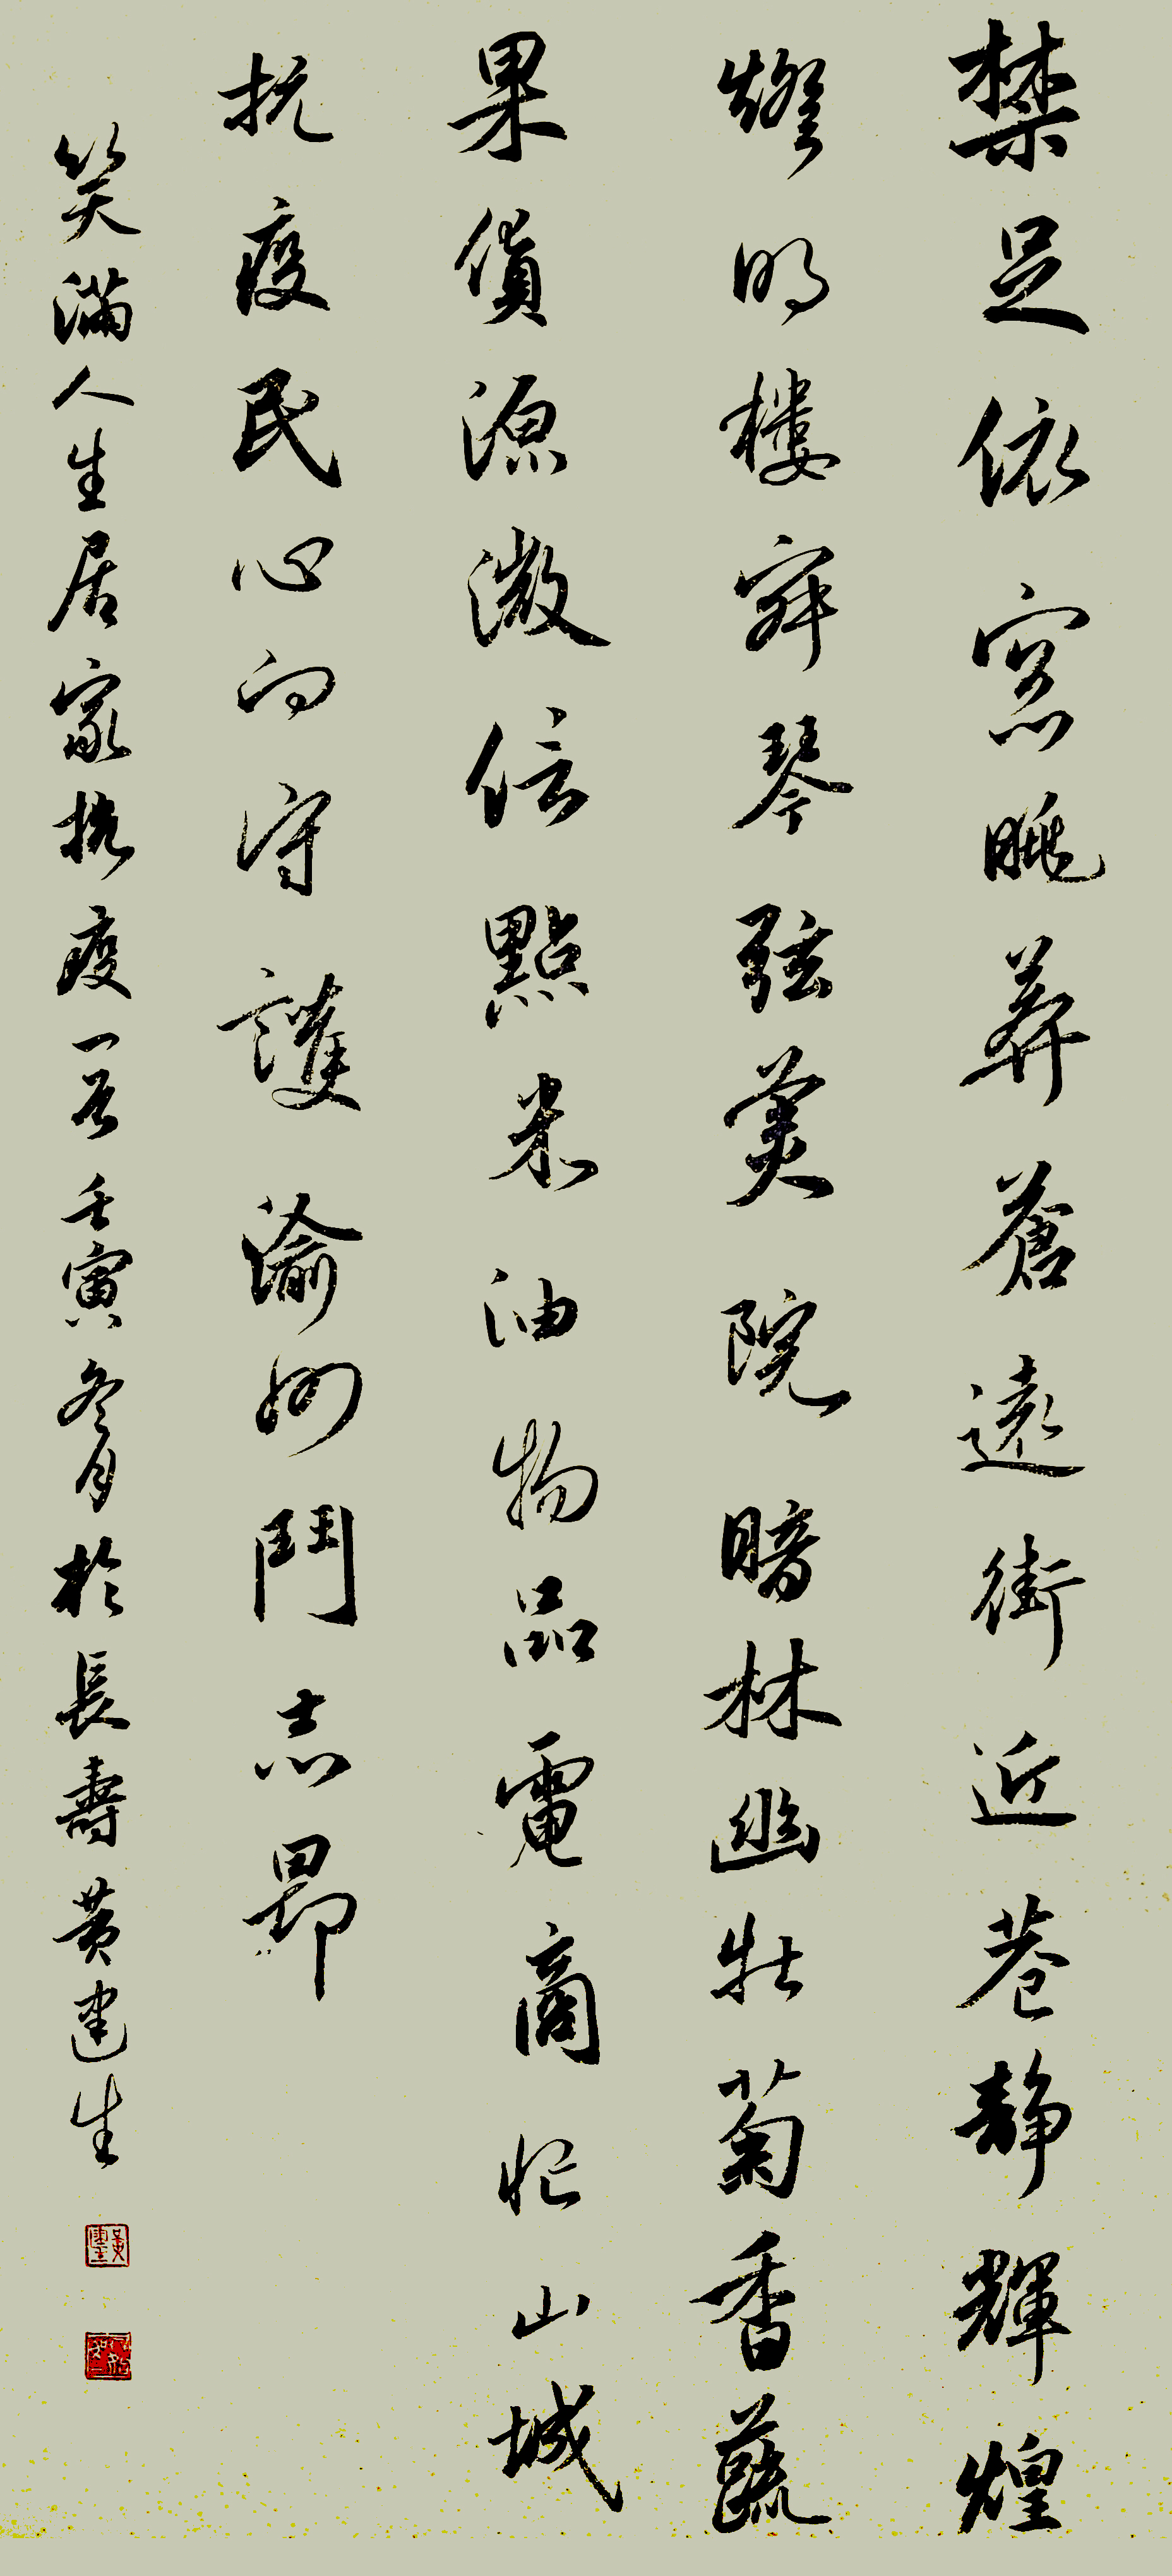 禁足依窓眺莽蒼遠街近巷靜輝煌
燈明樓寂琴弦美院暗林幽牡菊香蔬
果貨源微信點米油物品電商忙山城
抗疫民心向守護渝州鬥志昂
笑滿人生居家抗疫一首壬寅冬月於長壽黃建生